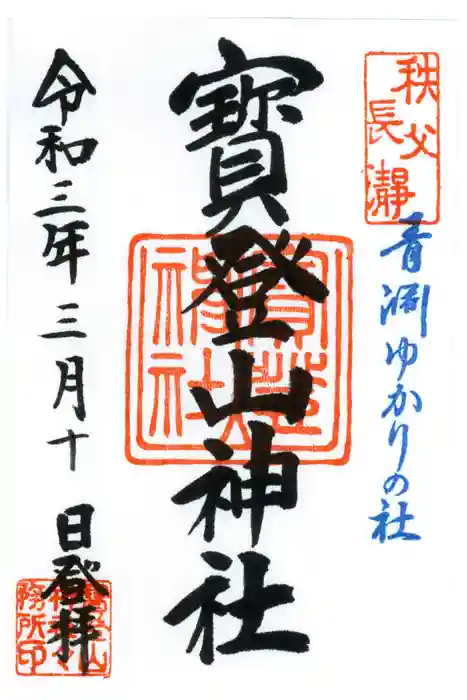 秩父
長瀞
青淵ゆかりの社
寳登山神社
令和三年三月十日登拝
寳登山
神社
寳登山
神社
務所印